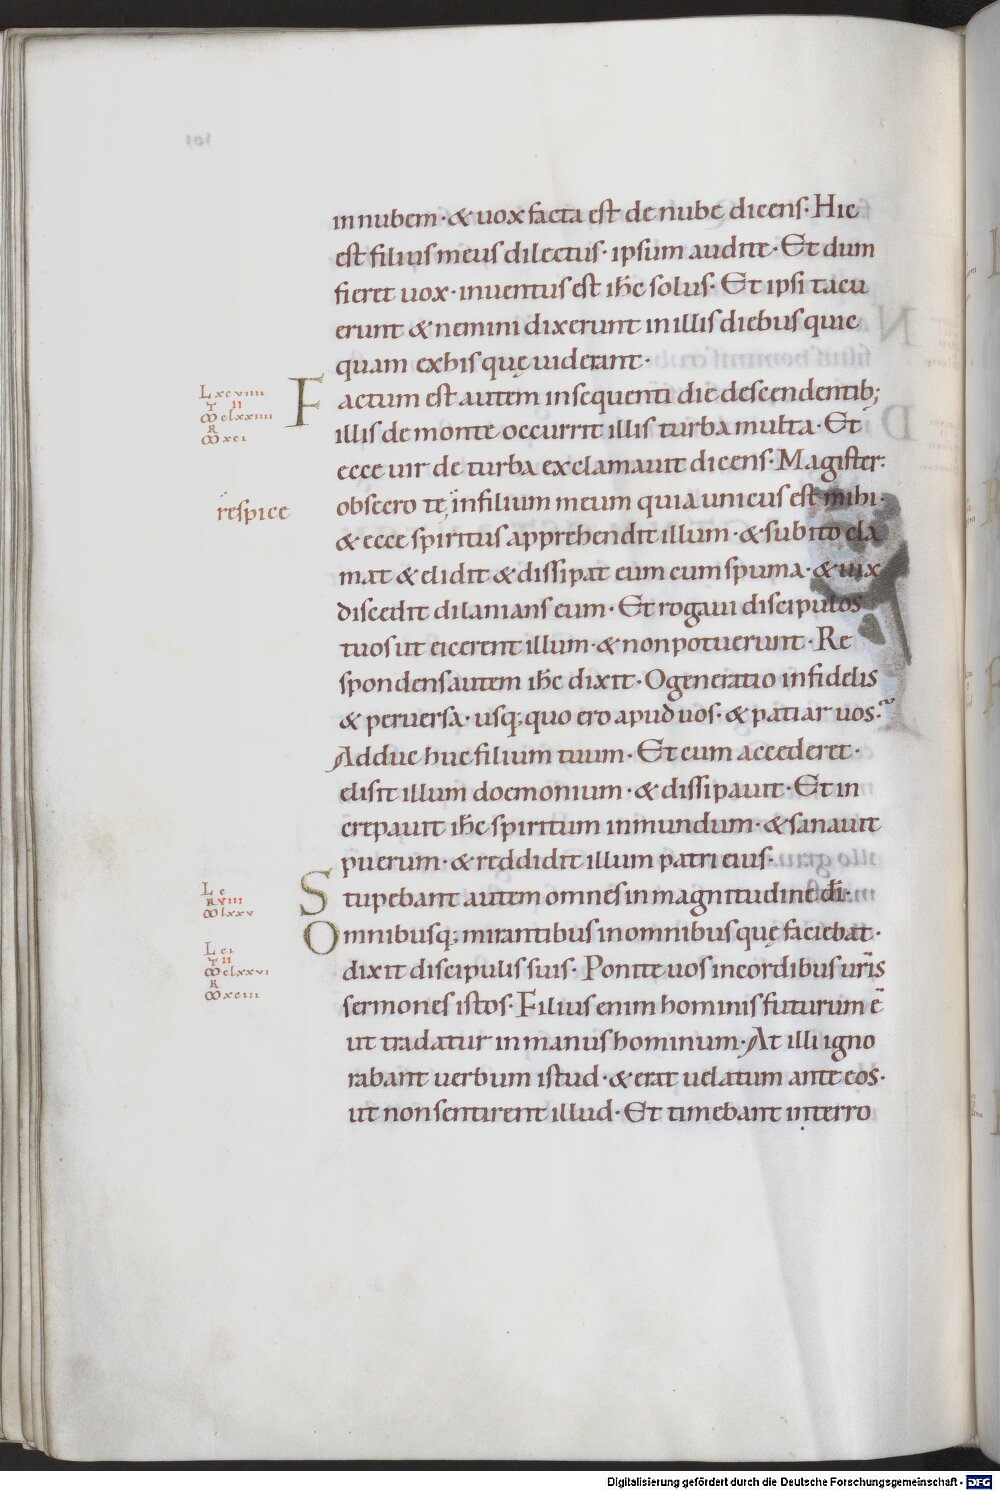 in nubem · & uox facta est de nube dicens · Hic
est filius meus dilectus · ipsum audite · Et dum
fieret uox · inuentus est ihc̄ solus · Et ipsi tacu
erunt & nemini dixerunt in illis diebus quic
quam ex his quę uiderant ·
L xcviiii
II
M clxxiiii
R
M xci
Factum est autem in sequenti die descendentib;
illis de monte occurrit illis turba multa · Et
ecce uir de turba exclamauit dicens · Magister ·
respice
obsecro te, in filium meum quia unicus est mihi ·
& ecce spiritus apprehendit illum · & subito cla
mat & elidit & dissipat eum cum spuma · & uix
discedit dilanians eum · Et rogaui discipulos
tuos ut eicerent illum · & non potuerunt · Re
spondens autem ihc̄ dixit · O generatio infidelis
& peruersa · usq; quo ero apud uos · & patiar uos ·
Adduc huc filium tuum · Et cum accederet ·
elisit illum doemonium · & dissipauit · Et in
crepauit ihc̄ spiritum inmundum · & sanauit
puerum · & reddidit illum patri eius ·
L c
R VIII
M lxxv
Stupebant autem omnes in magnitudine dī ·
Omnibusq; mirantibus in omnibus quę faciebat ·
L ci
II
M clxxvi
R
M xciii
dixit discipulis suis · Ponite uos in cordibus uris̄
sermones istos · Filius enim hominis futurum ē
ut tradatur in manus hominum · At illi igno
rabant uerbum istud · & erat uelatum ante eos ·
ut non sentirent illud · Et timebant interro
Digitalisierung gefördert durch die Deutsche Forschungsgemeinschaft - DFG